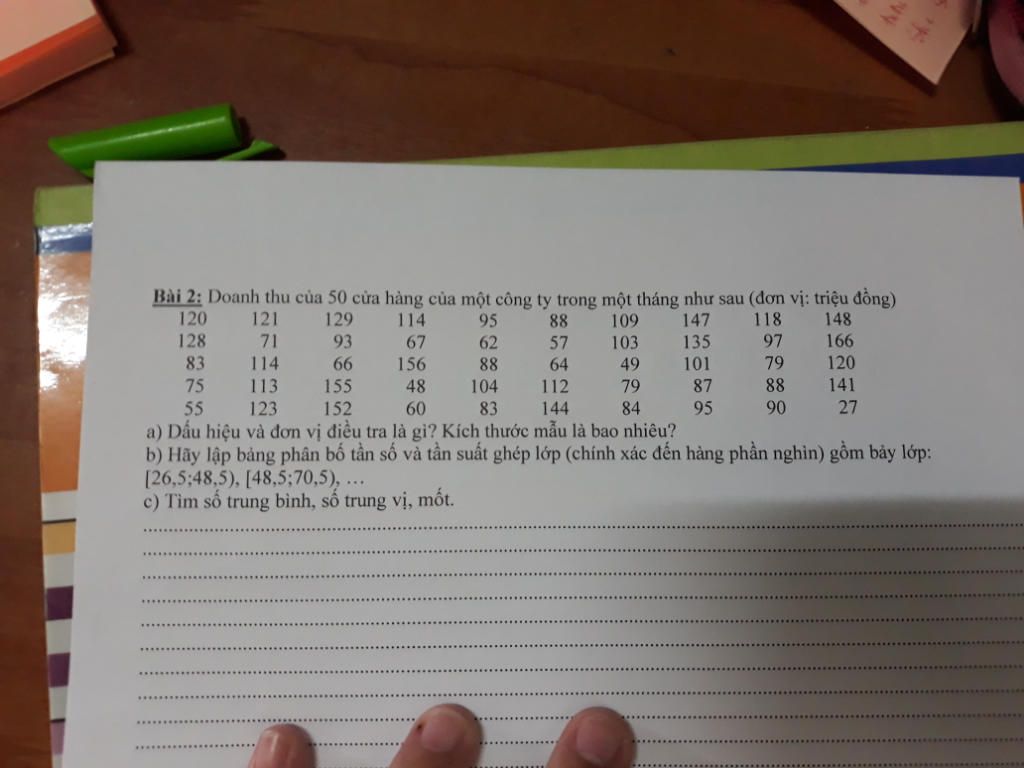 Bài 2: Doanh thu của 50 cửa hàng của một công ty trong một tháng như sau (đơn vị: triệu đồng)
120 121 129 114 95 88 109 147 118 148
128 71 93 67 62 57 103 135 97 166
83 114 66 156 88 64 49 101 79 120
75 113 155 48 104 112 79 87 88 141
55 123 152 60 83 144 84 95 90 27
a) Dấu hiệu và đơn vị điều tra là gì? Kích thước mẫu là bao nhiêu?
b) Hãy lập bảng phân bố tần số và tần suất ghép lớp (chính xác đến hàng phần nghìn) gồm bảy lớp:
[26,5;48,5), [48,5;70,5), …
c) Tìm số trung bình, số trung vị, mốt.